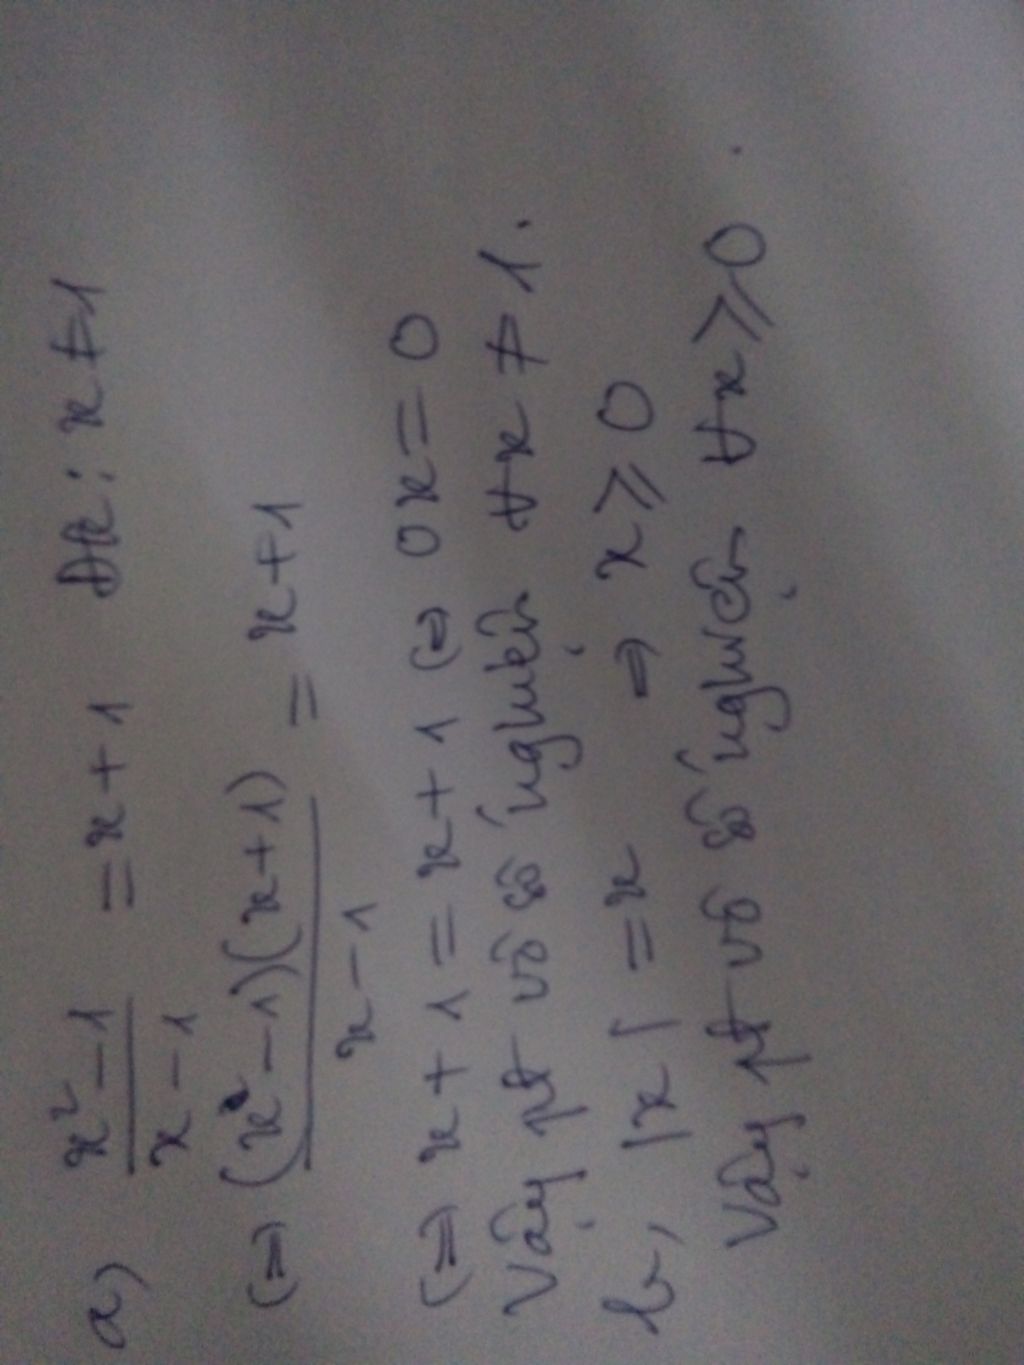 a) x²-1 / x-1 = x+1 Đk: x ≠ 1
(=) (x-1)(x+1) / x-1 = x+1
(=) x+1 = x+1 (=) 0x = 0
Vậy pt vô số nghiệm ∀x ≠ 1.
b, |x| = x => x ⩾ 0
Vậy pt vô số nghiệm ∀x ⩾ 0.